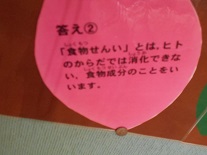 答え②
「食物せんい」とは、ヒト
のからだでは消化できな
い、食物成分のことをい
います。